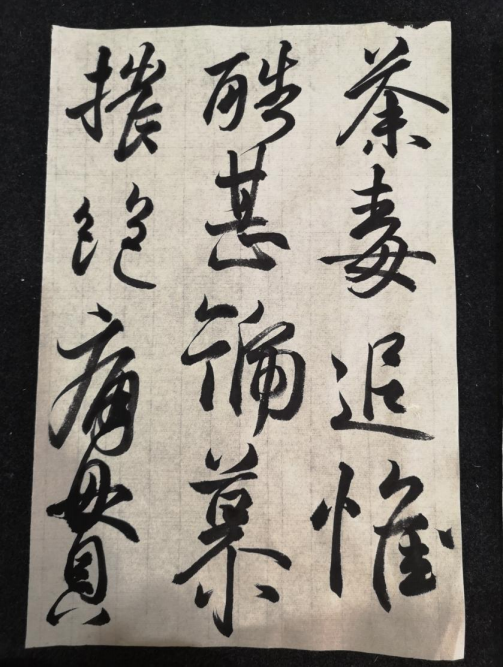 荼毒追惟
酷甚號慕
摧絶痛貫